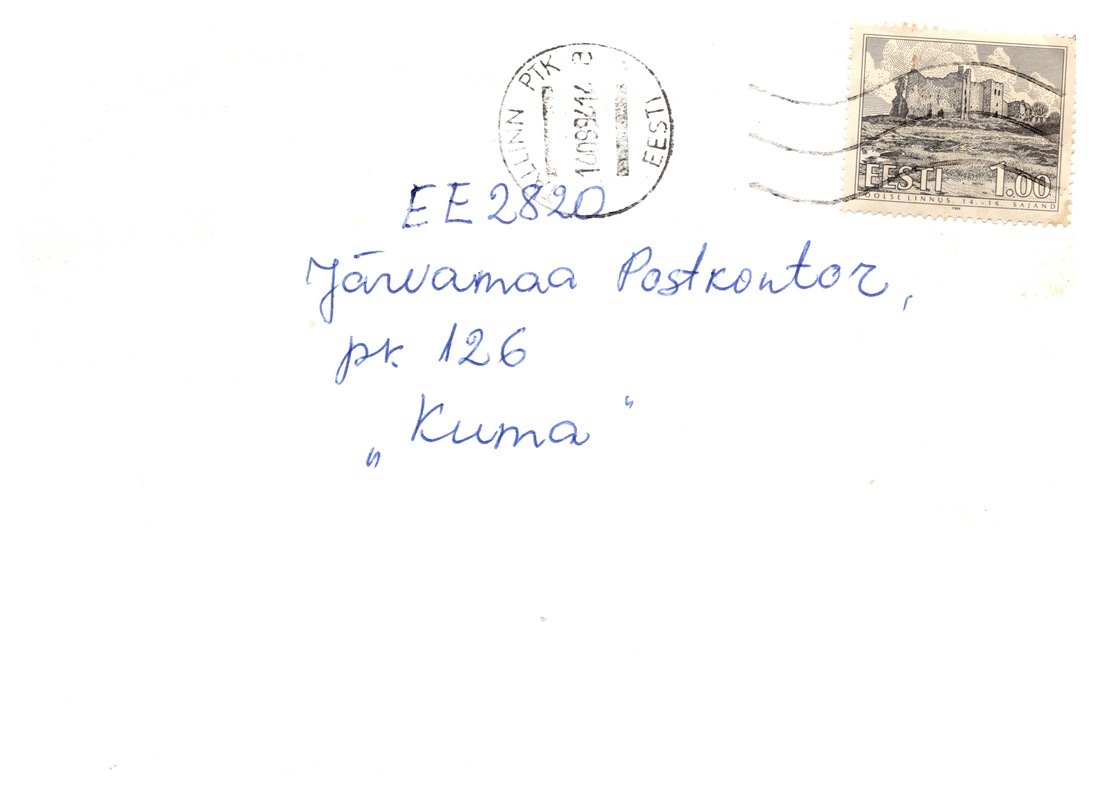 TALLINN PTK
EESTI
EESTI 1.00
TOOLSE LINNUS, 14.-16. SAJAND
EE2820
Järvamaa Postkontor,
pk 126
„Kuma"